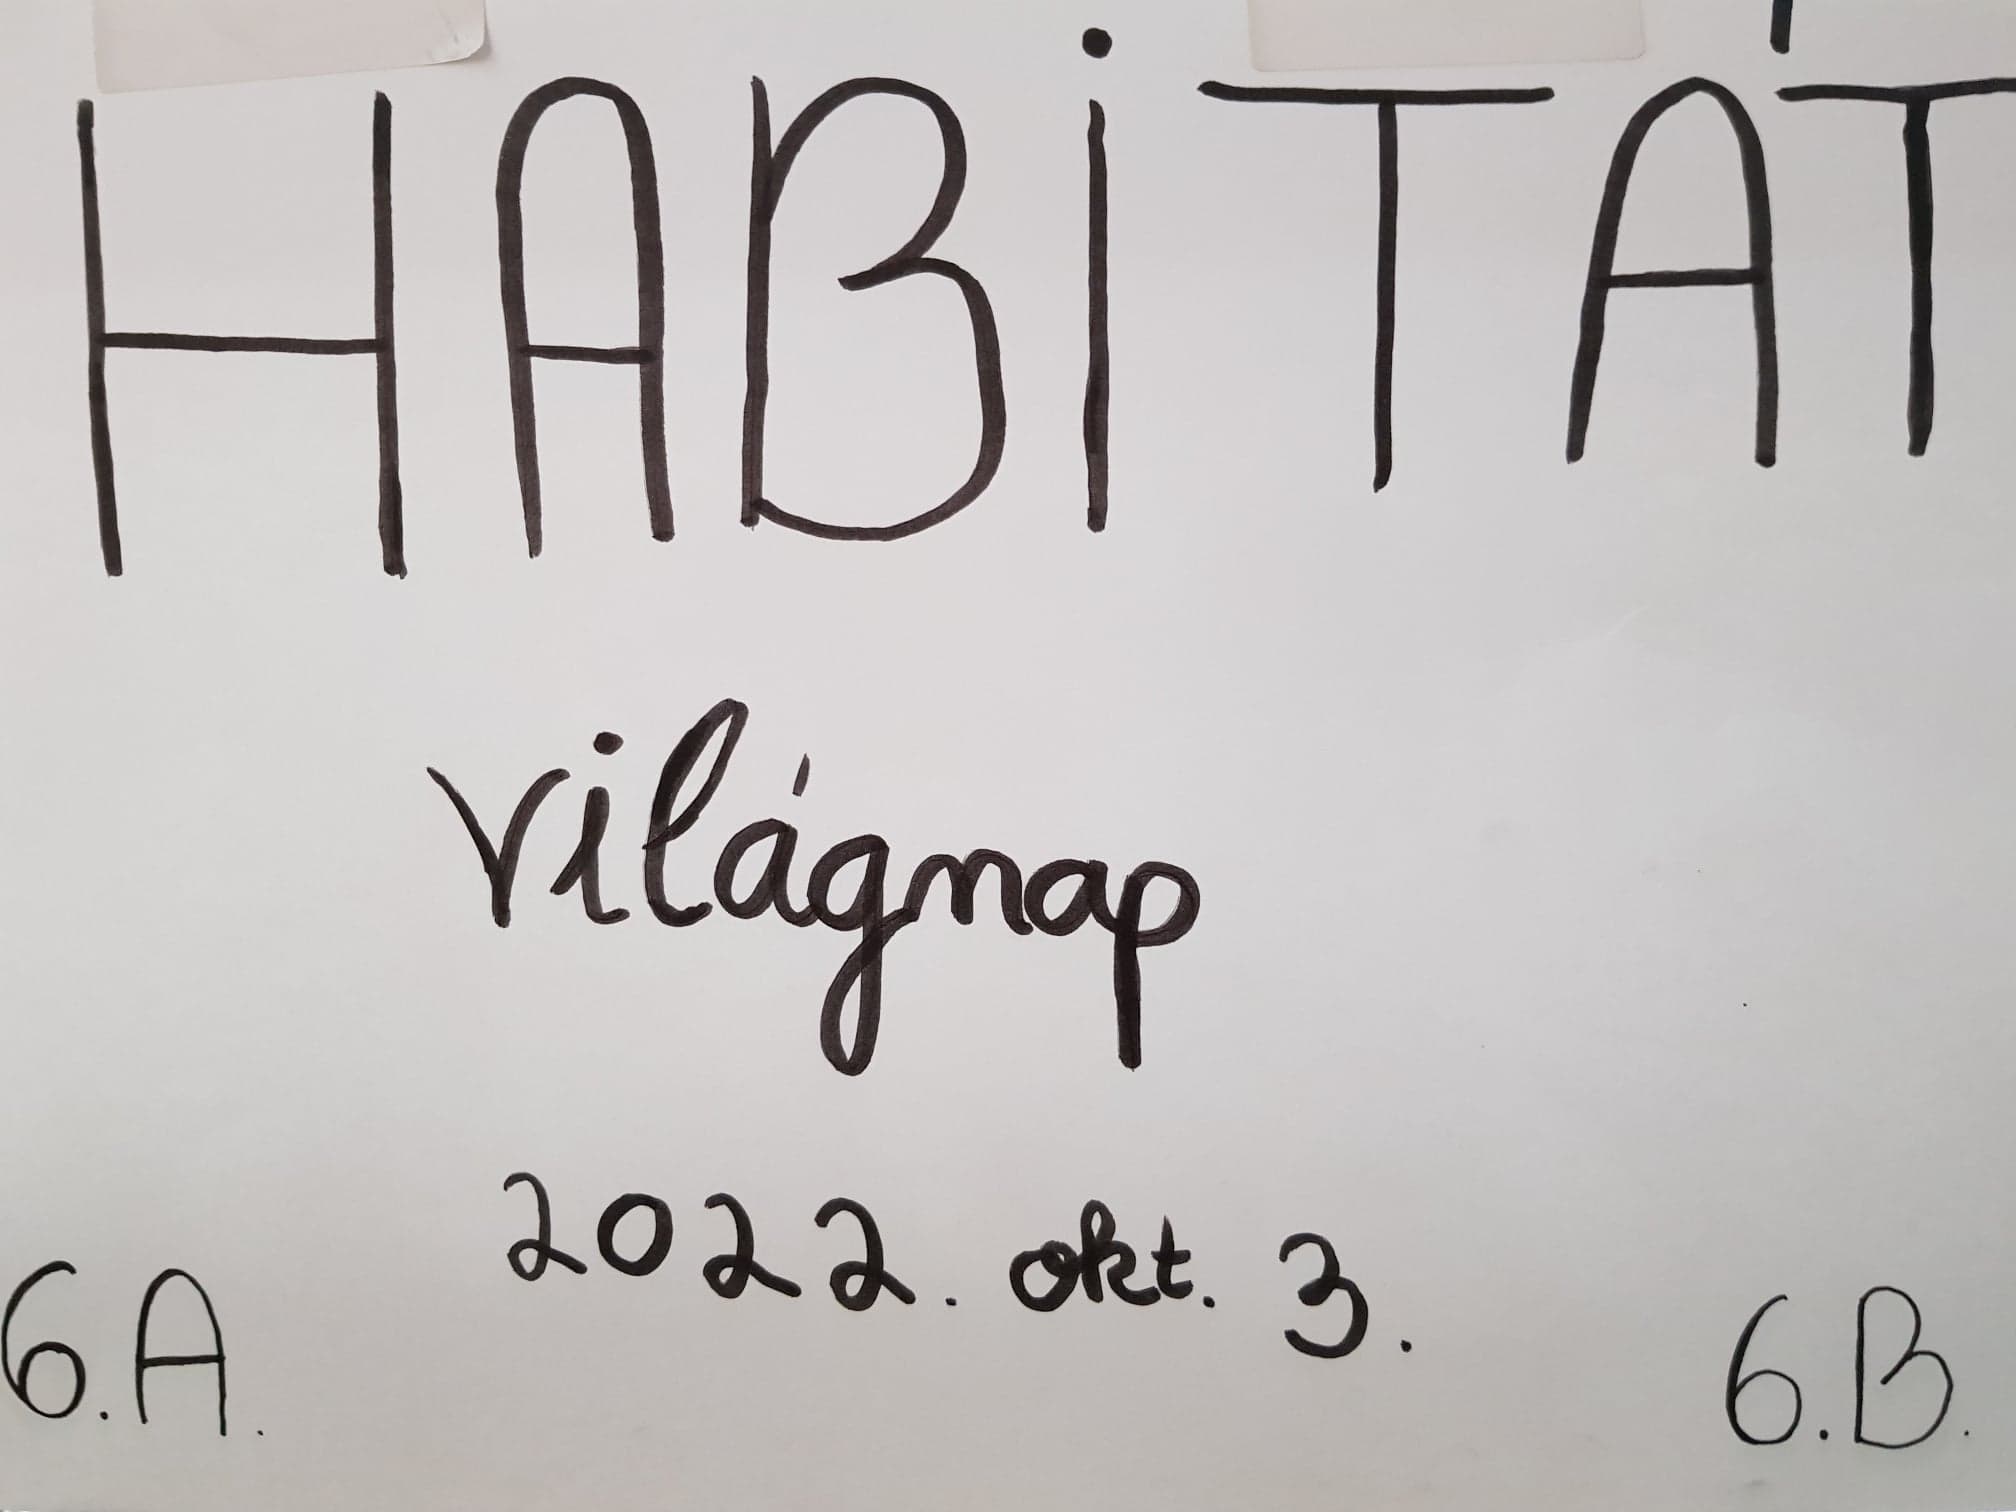 HABiTÁT
világnap
2022. okt. 3.
6.A. 6.B.